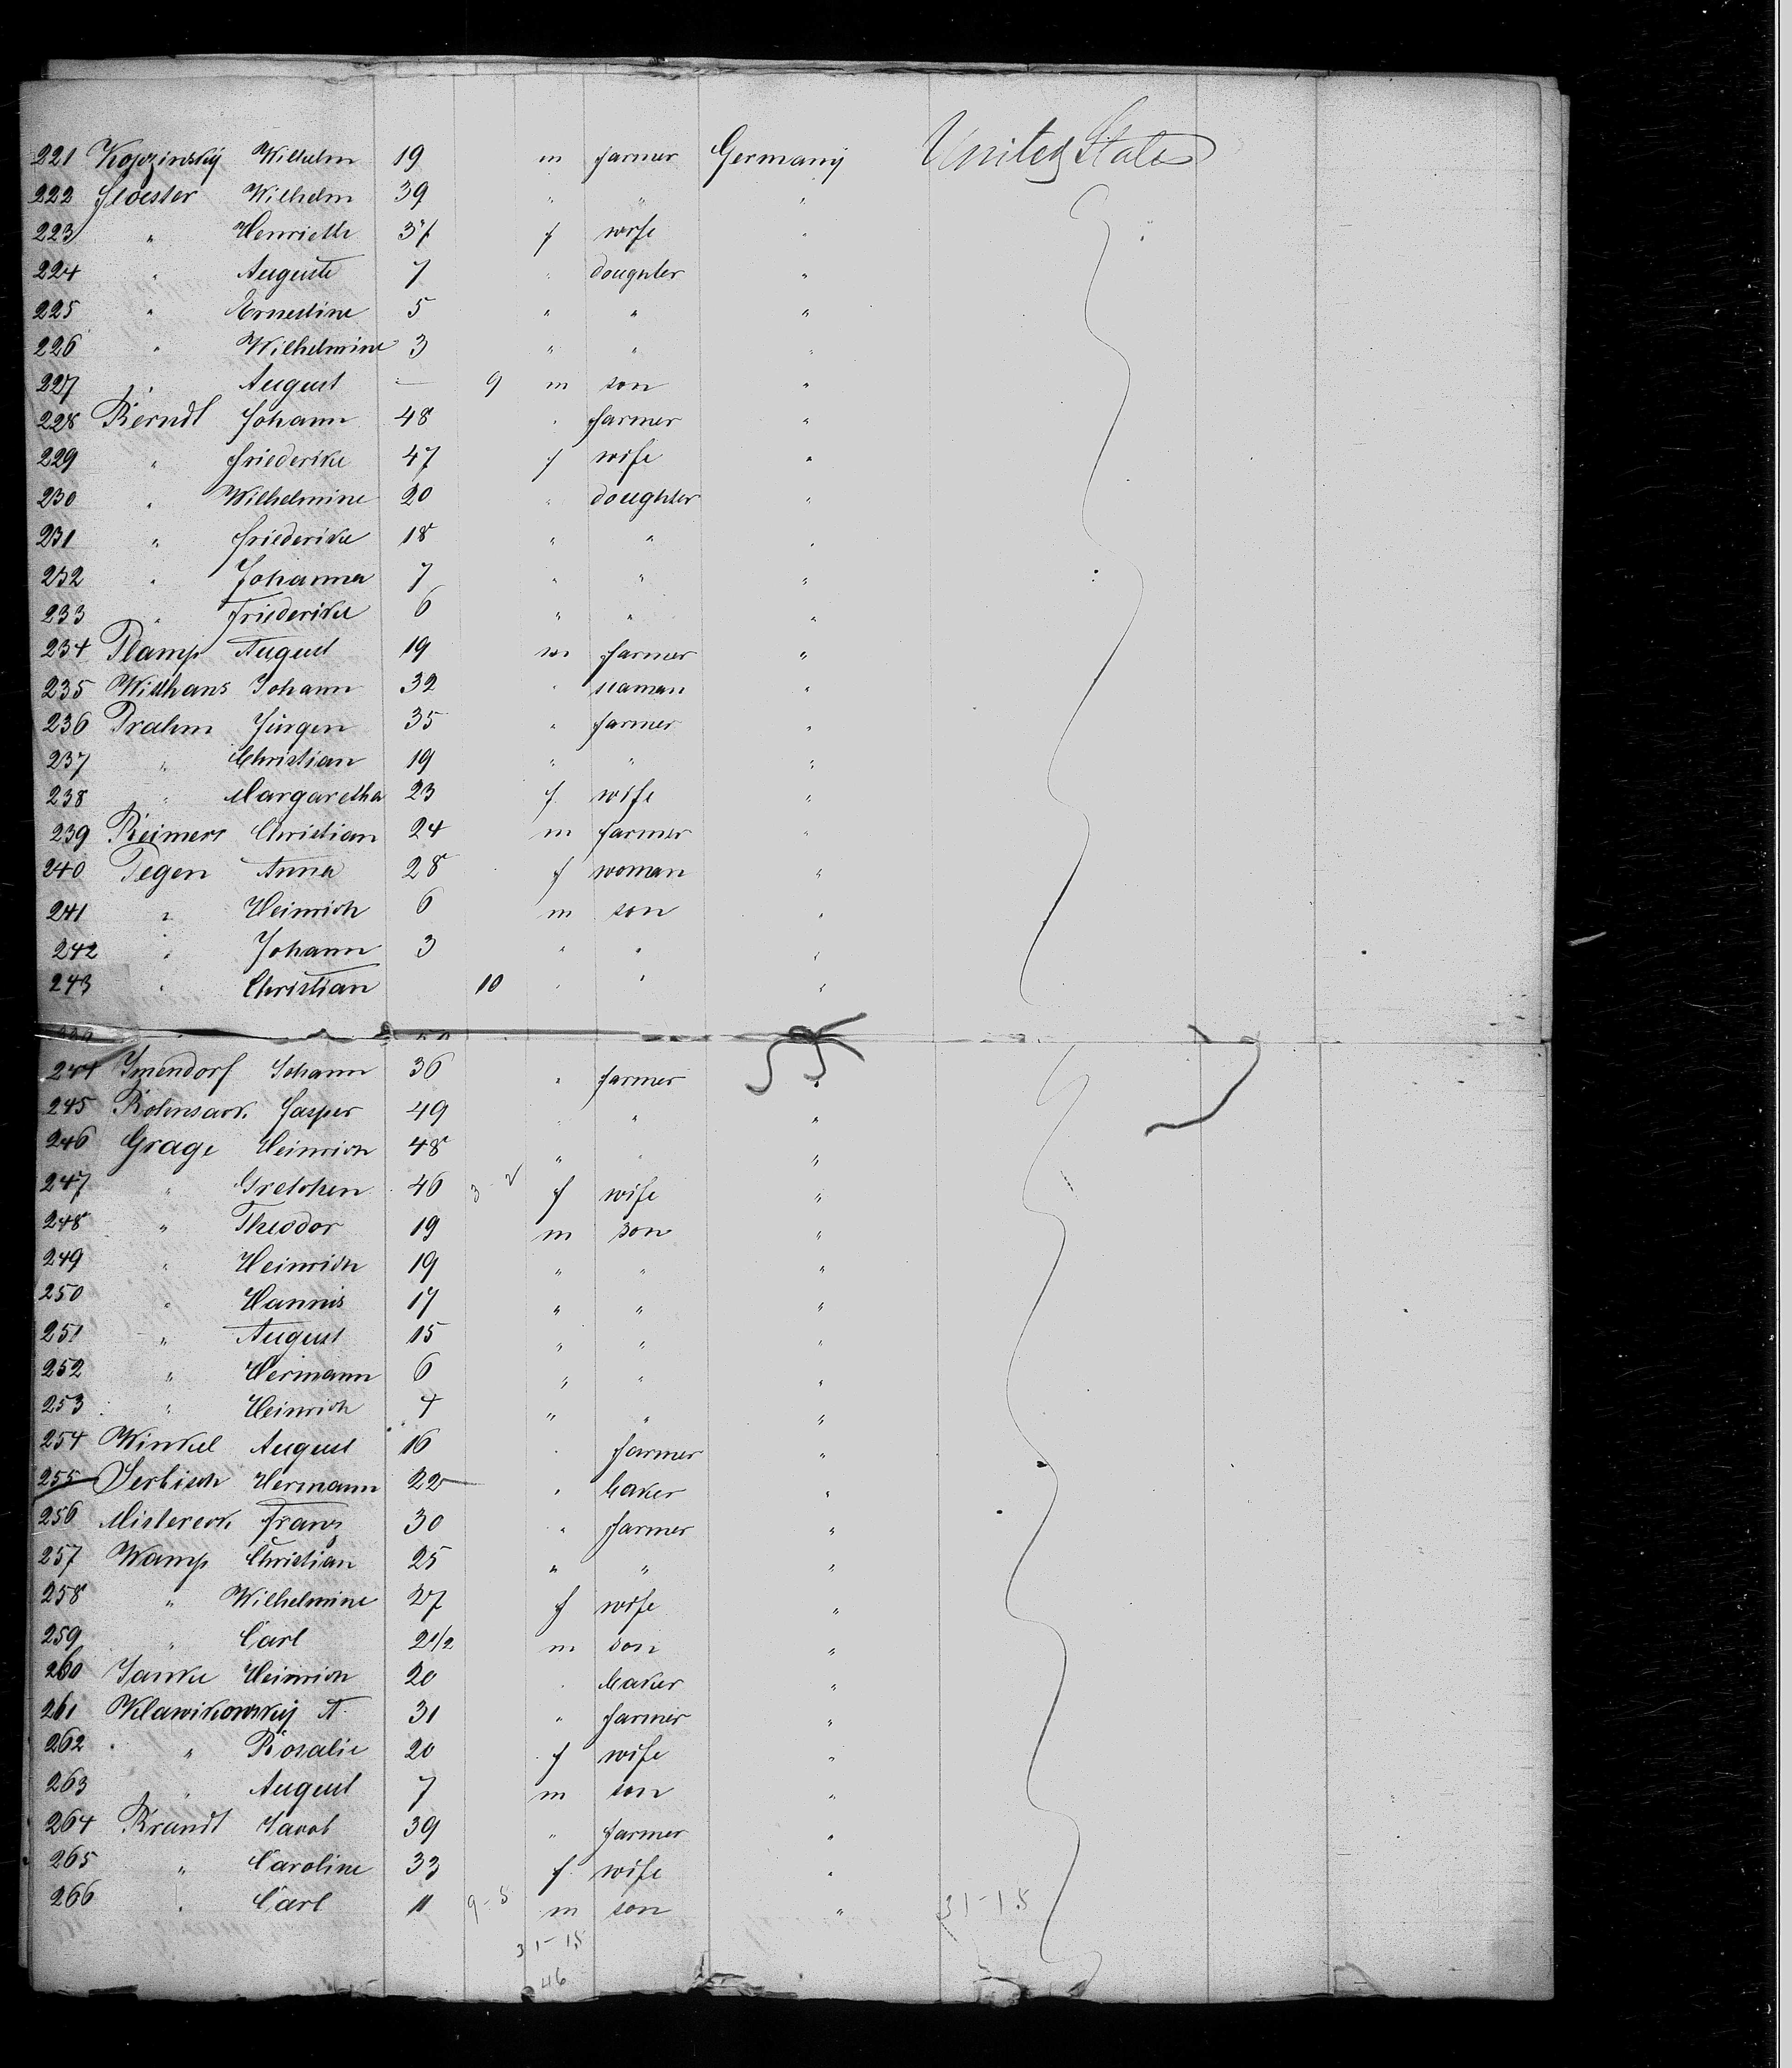 221 Kopzinsky Wilhelm 19 m farmer Germany United States
222 Floester Wilhelm 39 " " "
223 " Henriette 37 f wife "
224 " Auguste 7 " doughter "
225 " Ernestine 5 " " "
226 " Wilhelmine 3 " " "
227 " August — 9 m son "
228 Berndt Johann 48 " farmer "
229 " Friederike 47 f wife "
230 " Wilhelmine 20 " doughter "
231 " Friederike 18 " " "
232 " Johanna 7 " " "
233 " Friederike 6 " " "
234 Plamp August 19 m farmer "
235 Witthans Johann 32 " seaman "
236 Prahm Jürgen 35 " farmer "
237 " Christian 19 " " "
238 " Margaretha 23 f wife "
239 Reimers Christian 24 m farmer "
240 Tegen Anna 28 f woman "
241 " Heinrich 6 m son "
242 " Johann 3 " " "
243 " Christian 10 " " "
244 Imendorf Johann 36 " farmer "
245 Jasper 49 " " "
246 Grage Heinrich 48 " " "
247 " Gretchen 46 f wife "
248 " Theodor 19 m son "
249 " Heinrich 19 " " "
250 " Hannis 17 " " "
251 " August 15 " " "
252 " Hermann 6 " " "
253 " Heinrich 4 " " "
254 Winkel August 16 " farmer "
255 Serbisch Hermann 22 " baker "
256 Mistereck Franz 30 " farmer "
257 Wamp Christian 25 " " "
258 " Wilhelmine 27 f wife "
259 " Carl 2 1/2 m son "
260 Janke Heinrich 20 " baker "
261 Klawikowsky A. 31 " farmer "
262 " Rosalie 20 f wife "
263 " August 7 m son "
264 Brandt Jacob 39 " farmer "
265 " Caroline 33 f wife "
266 " Carl 11 9-8 m son " 31-15
31-15
46